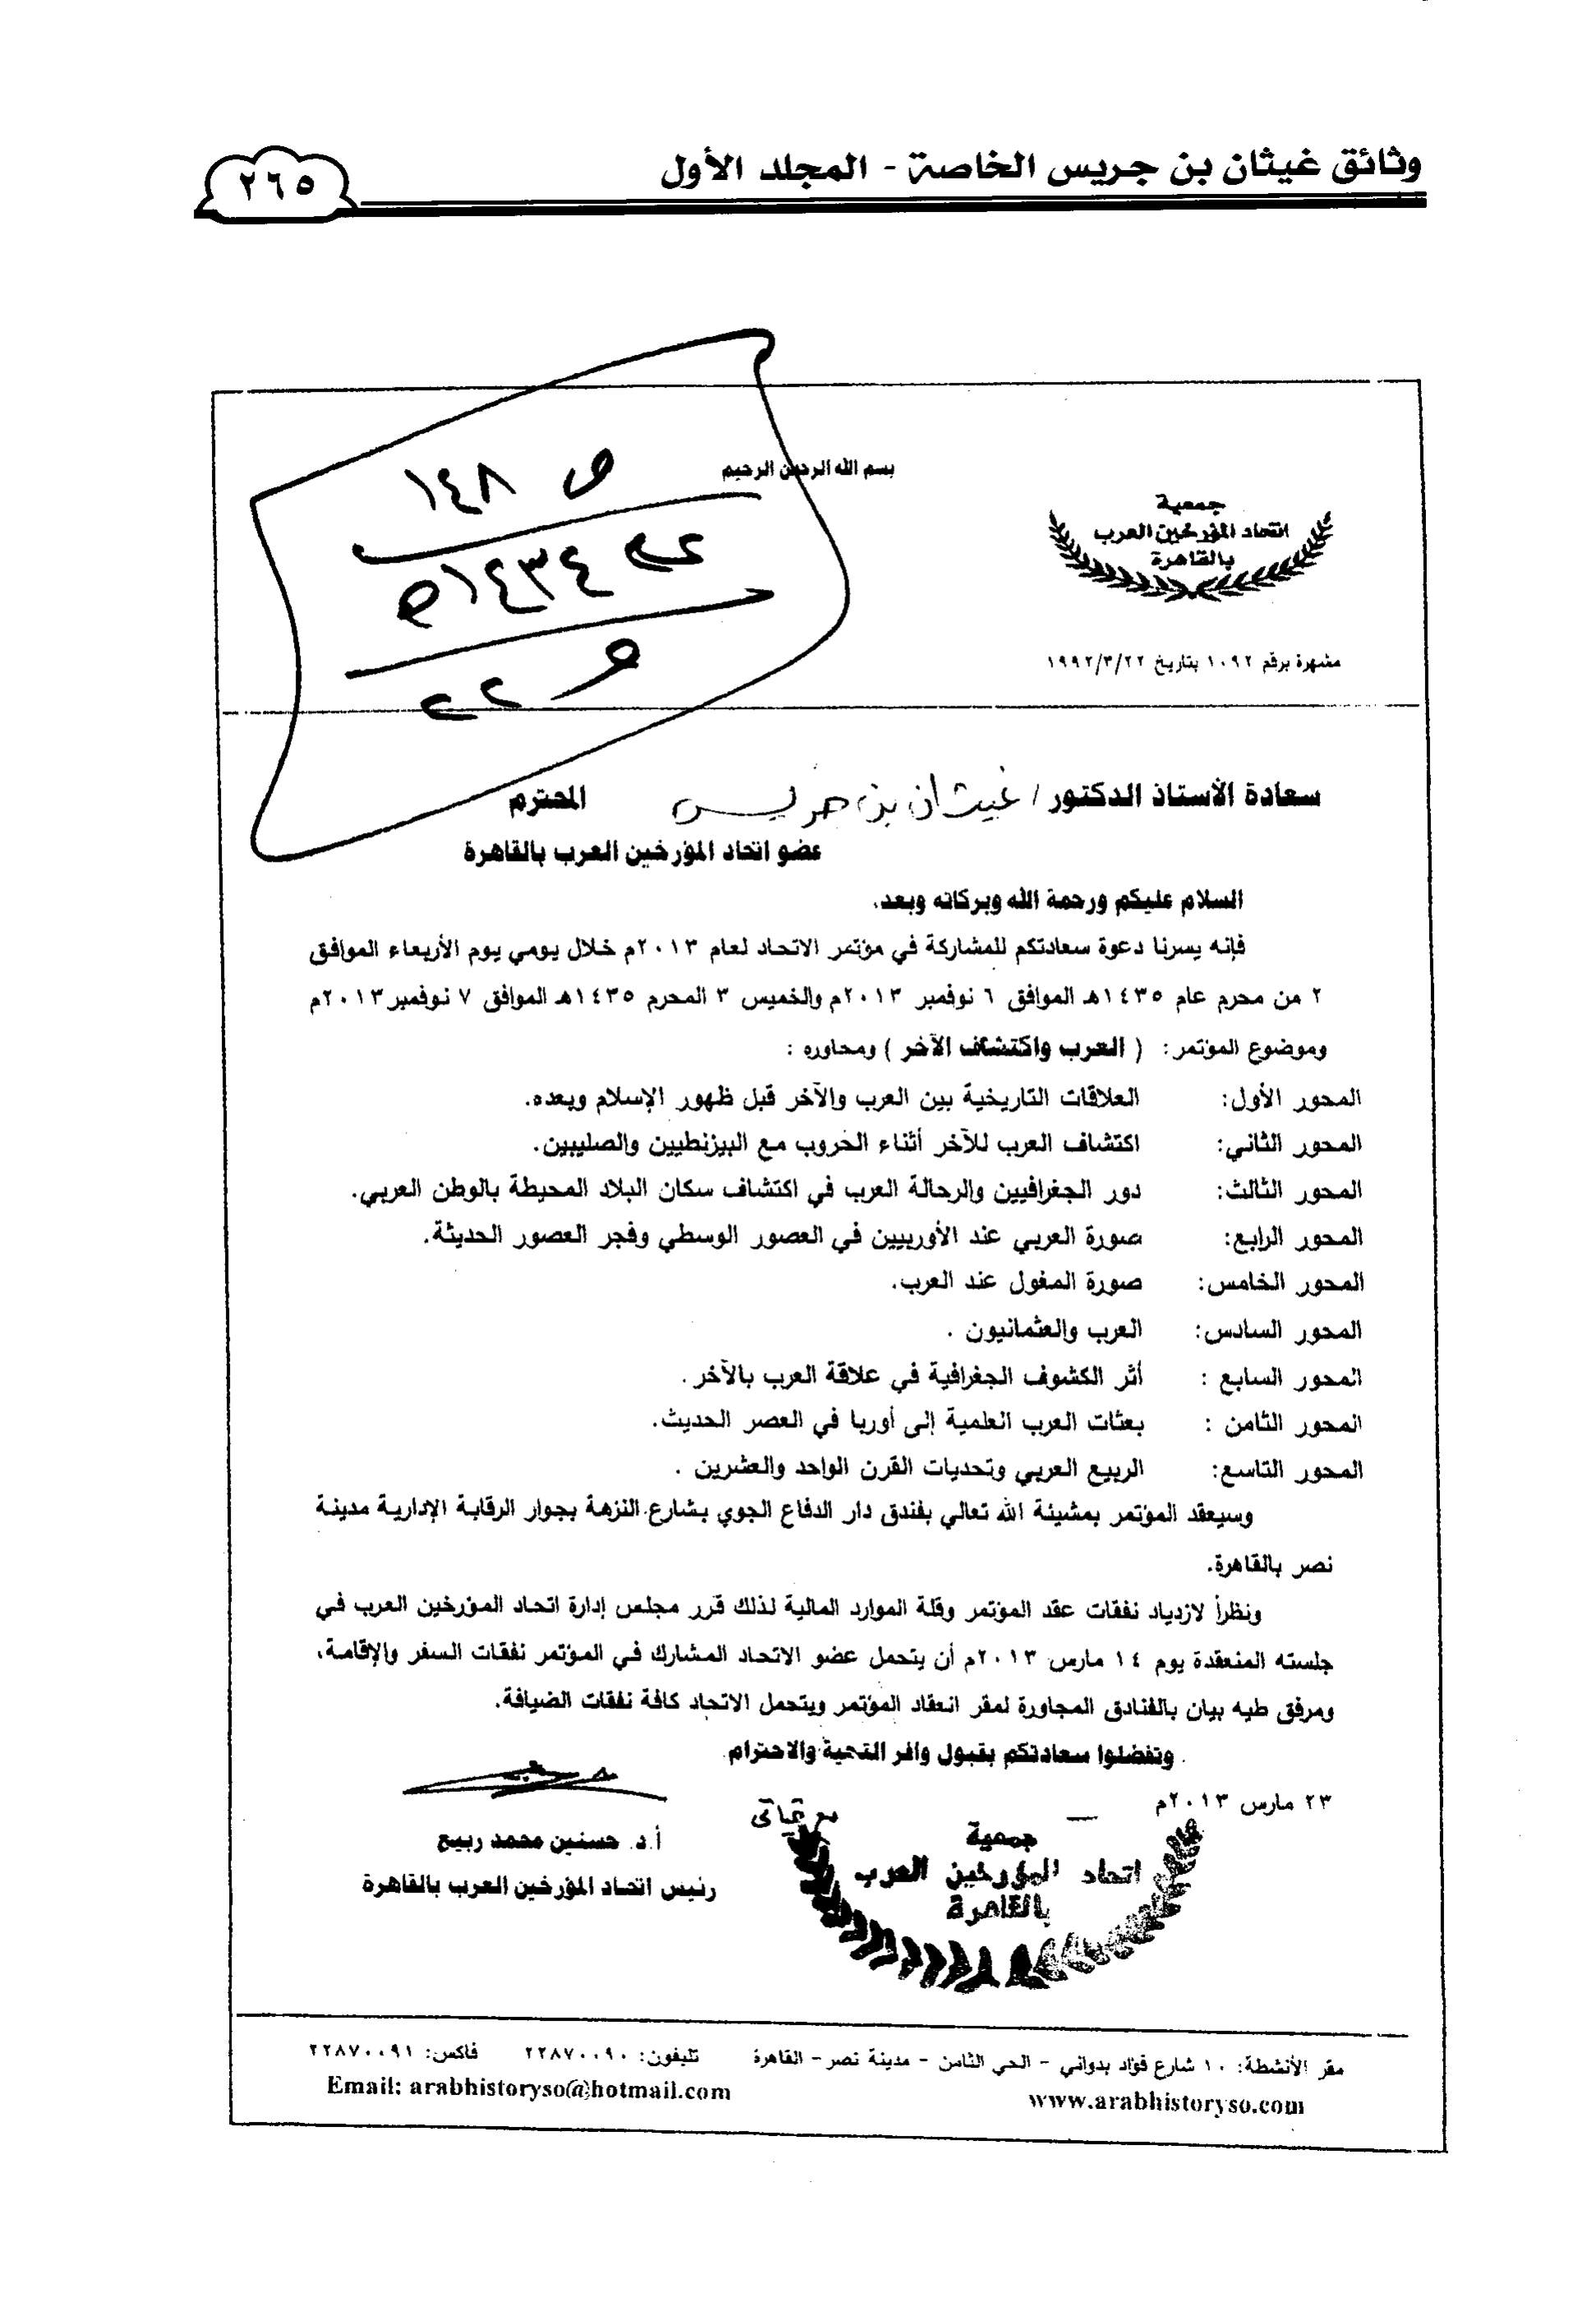 وثائق غيثان بن جريس الخاصة - المجلد الأول
٢٦٥
ص ١٤٨
عام ١٤٣٤هـ
و ٢٢
بسم الله الرحمن الرحيم
جمعية
اتحاد المؤرخين العرب
بالقاهرة
مشهرة برقم ١٠٩٢ بتاريخ ١٩٩٢/٣/٢٢
سعادة الأستاذ الدكتور / غيثان بن جريس المحترم
عضو اتحاد المؤرخين العرب بالقاهرة
السلام عليكم ورحمة الله وبركاته وبعد.
فإنه يسرنا دعوة سعادتكم للمشاركة في مؤتمر الاتحاد لعام ٢٠١٣م خلال يومي يوم الأربعاء الموافق
٢ من محرم عام ١٤٣٥هـ الموافق ٦ نوفمبر ٢٠١٣م والخميس ٣ المحرم ١٤٣٥هـ الموافق ٧ نوفمبر٢٠١٣م
وموضوع المؤتمر: ( العرب واكتشاف الآخر ) ومحاوره :
المحور الأول: العلاقات التاريخية بين العرب والآخر قبل ظهور الإسلام وبعده.
المحور الثاني: اكتشاف العرب للآخر أثناء الحروب مع البيزنطيين والصليبين.
المحور الثالث: دور الجغرافيين والرحالة العرب في اكتشاف سكان البلاد المحيطة بالوطن العربي.
المحور الرابع: صورة العربي عند الأوربيين في العصور الوسطي وفجر العصور الحديثة.
المحور الخامس: صورة المغول عند العرب.
المحور السادس: العرب والعثمانيون .
المحور السابع : أثر الكشوف الجغرافية في علاقة العرب بالآخر .
المحور الثامن : بعثات العرب العلمية إلى أوربا في العصر الحديث.
المحور التاسع: الربيع العربي وتحديات القرن الواحد والعشرين .
وسيعقد المؤتمر بمشيئة الله تعالي بفندق دار الدفاع الجوي بشارع النزهة بجوار الرقابة الإدارية مدينة
نصر بالقاهرة.
ونظراً لازدياد نفقات عقد المؤتمر وقلة الموارد المالية لذلك قرر مجلس إدارة اتحاد المؤرخين العرب في
جلسته المنعقدة يوم ١٤ مارس ٢٠١٣م أن يتحمل عضو الاتحاد المشارك في المؤتمر نفقات السفر والإقامة،
ومرفق طيه بيان بالفنادق المجاورة لمقر انعقاد المؤتمر ويتحمل الاتحاد كافة نفقات الضيافة.
وتفضلوا سعادتكم بقبول وافر التحية والاحترام
٢٣ مارس ٢٠١٣م
جمعية
اتحاد المؤرخين العرب
بالقاهرة
أ.د. حسنين محمد ربيع
رئيس اتحاد المؤرخين العرب بالقاهرة
مقر الأنشطة: ١٠ شارع فؤاد بدواني - الحي الثامن - مدينة نصر - القاهرة تليفون: ٢٢٨٧٠٠٩٠ فاكس: ٢٢٨٧٠٠٩١
www.arabhistoryso.com Email: arabhistoryso@hotmail.com